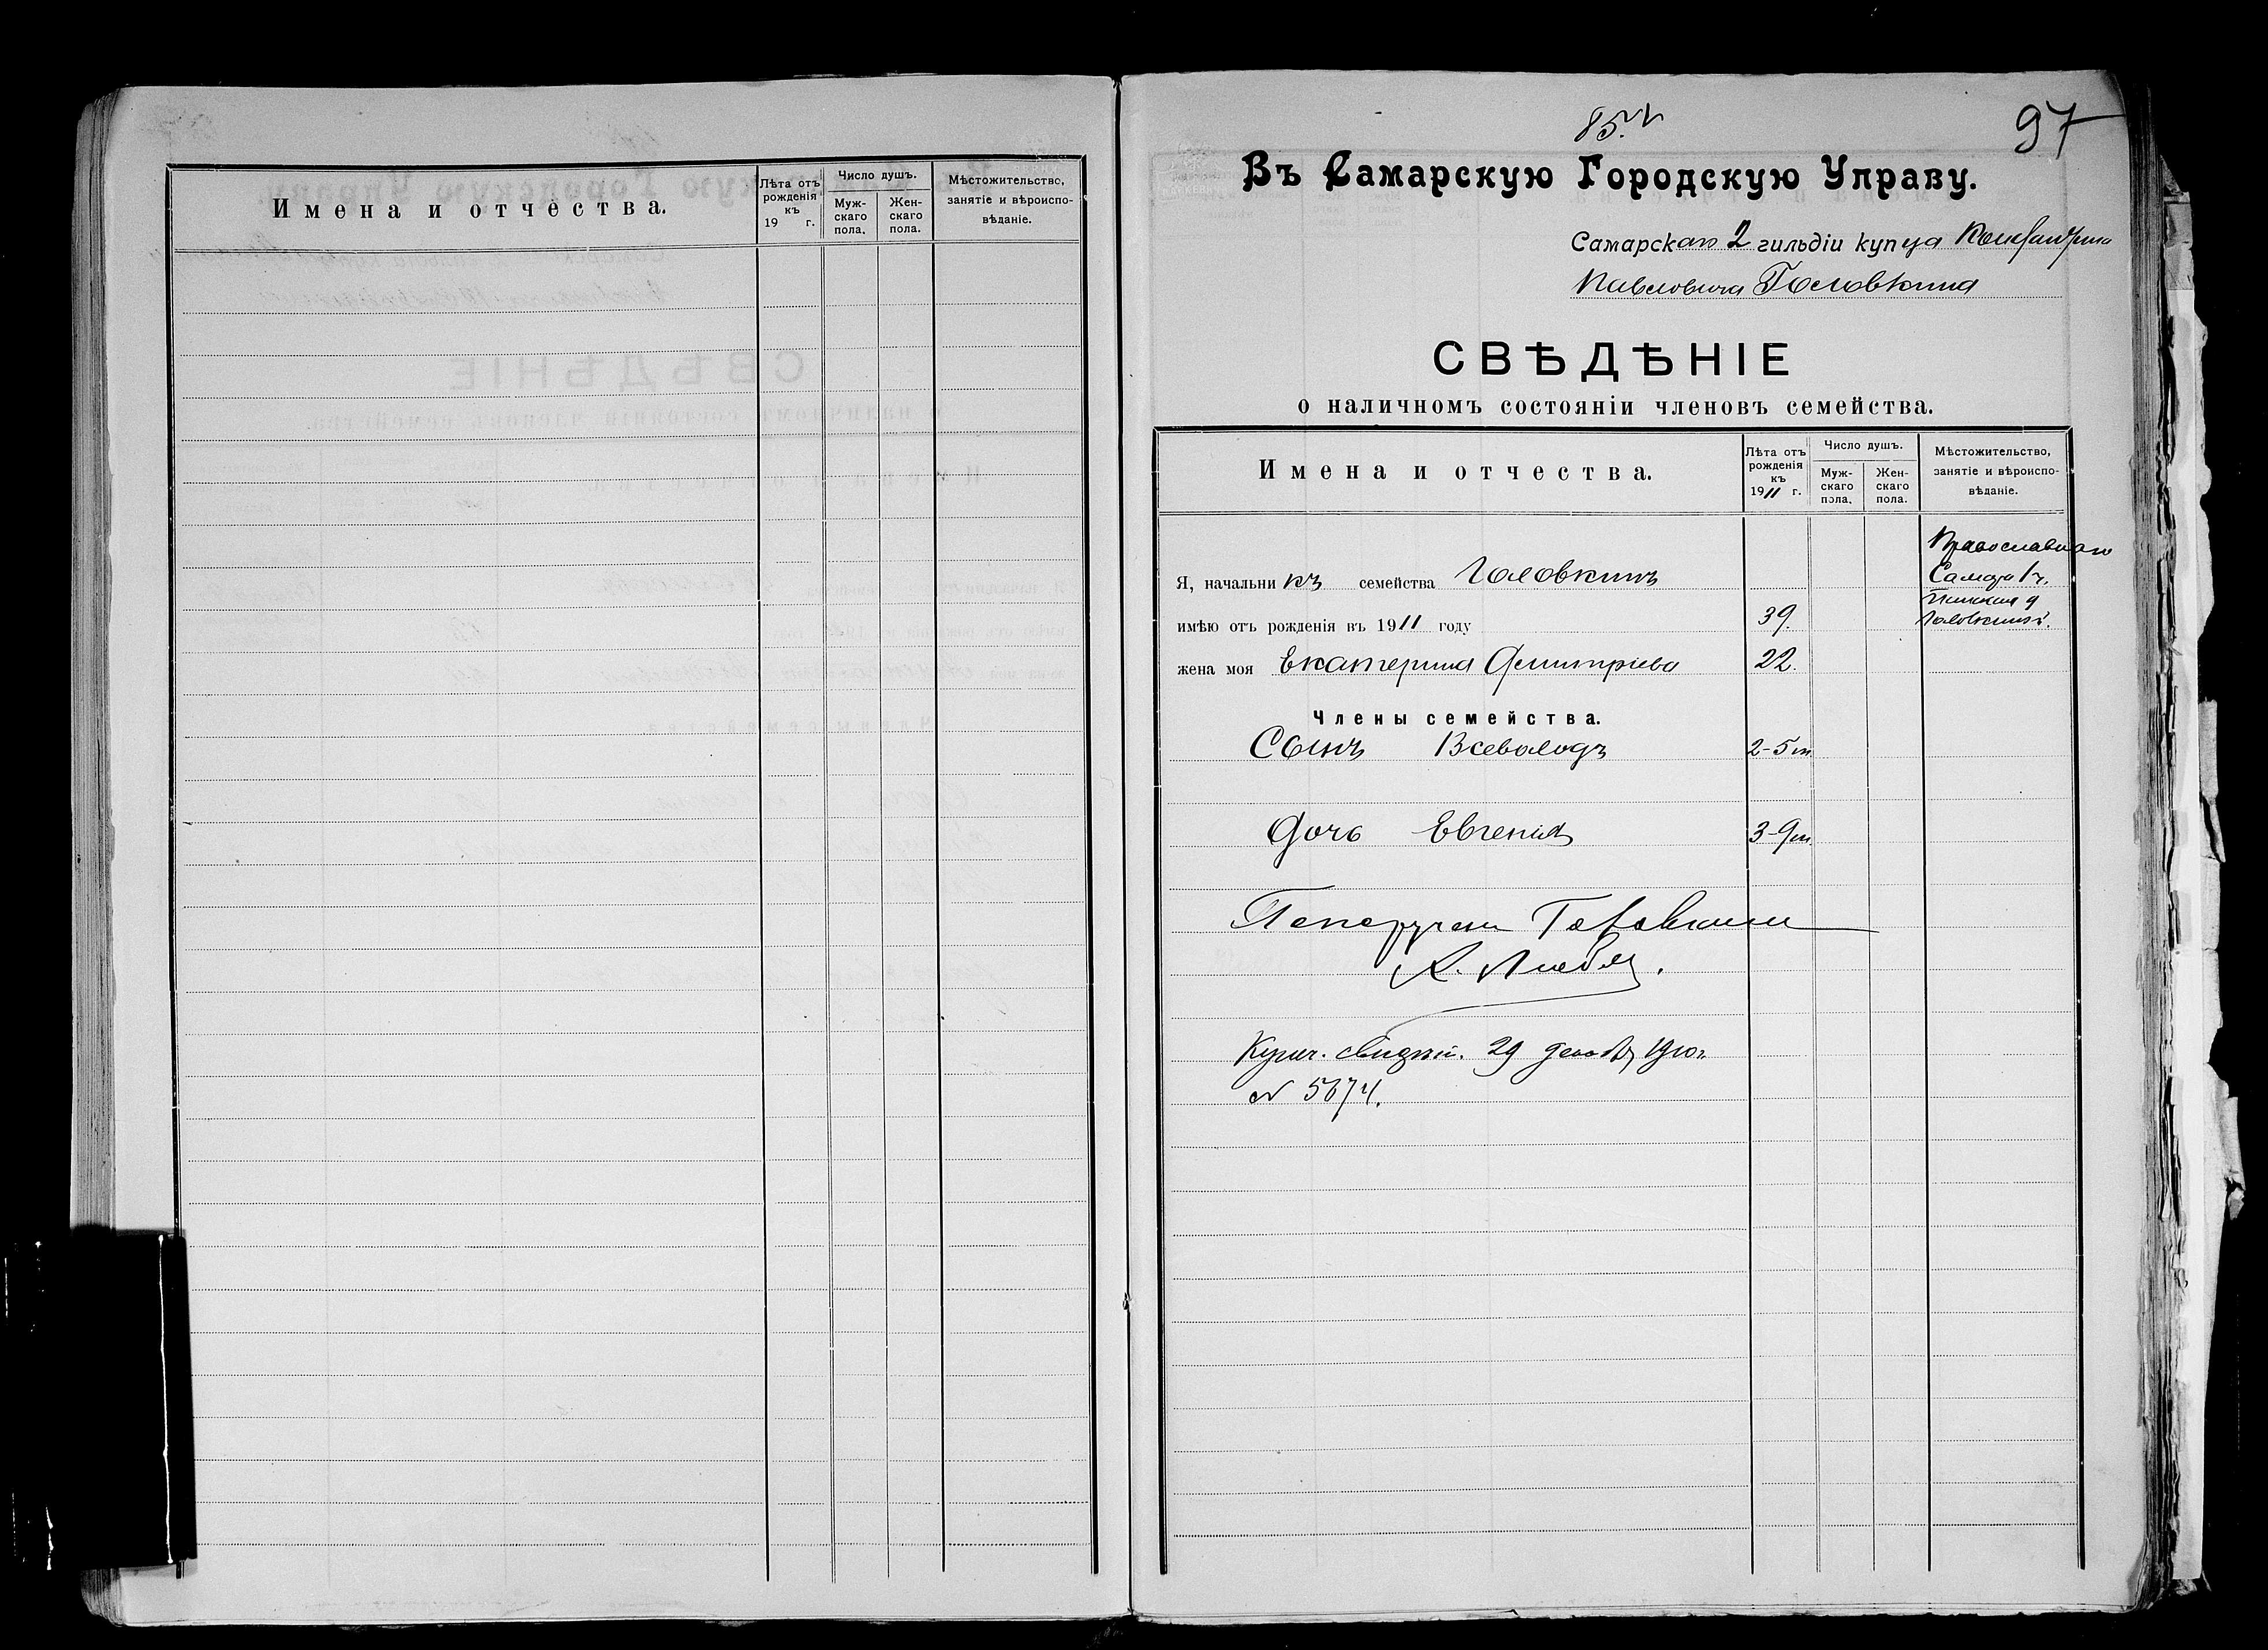 Имена и отчества.
Лѣта отъ рожденія къ 19 г.
Число душъ.
Муж-скаго пола.
Жен-скаго пола.
Мѣстожительство, занятіе и вѣроиспо-вѣданіе.
85.
97
Въ Самарскую Городскую Управу.
Самарскаго 2 гильдіи купца Константина
Павловича Головкина
СВѢДѢНІЕ
о наличномъ состояніи членовъ семейства.
Имена и отчества.
Лѣта отъ рожденія къ 1911 г.
Число душъ.
Муж-скаго пола.
Жен-скаго пола.
Мѣстожительство, занятіе и вѣроиспо-вѣданіе.
Православнаго
Я, начальникъ семейства Головкинъ
Самара 1ч.
имѣю отъ рожденія въ 1911 году 39.
Головкиной.
жена моя Екатерина Дмитріева 22.
Члены семейства.
Сынъ Всеволодъ 2-5 м.
Дочь Евгенія 3-9 м.
Головкинъ
Купеч. свидѣт. 29 декабря 1910 г.
№ 5674.